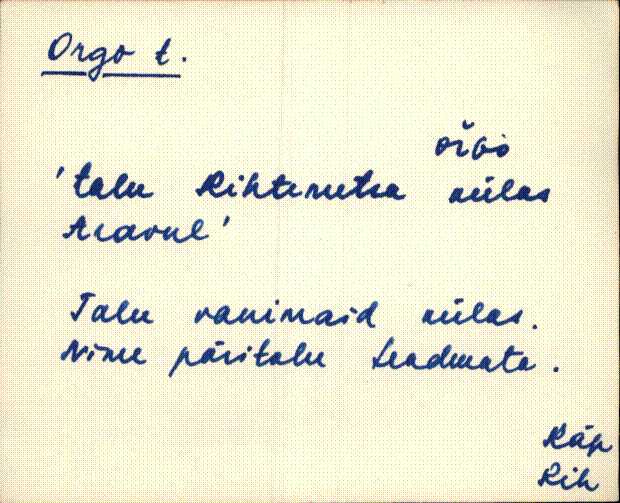 Orgo t.
'talu Rihtemetsa külas
Aravul'
Talu vanimaid külas.
Nime päritolu teadmata.
Räp
Rih